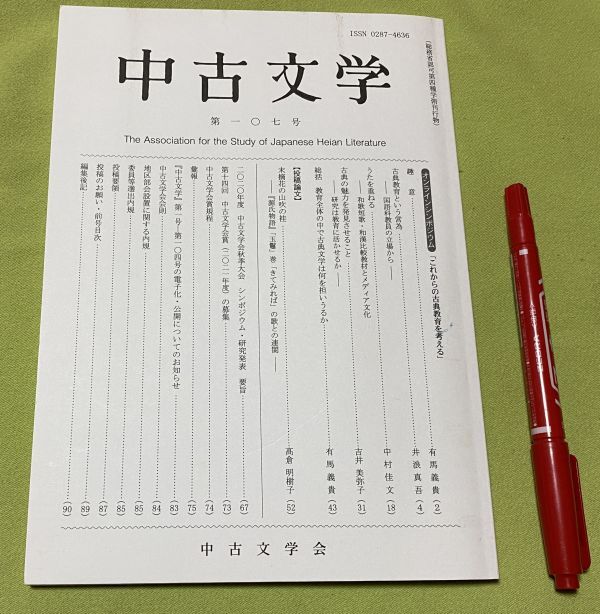 ISSN 0287-4636
(総務省認可第四種学術刊行物)
中古文学
第一〇七号
The Association for the Study of Japanese Heian Literature
オンラインシンポジウム「これからの古典教育を考える」
趣意 有馬義貴 (2)
古典教育という営為
――国語科教員の立場から―― 井浪真吾 (4)
うたを重ねる
――和歌短歌・和漢比較教材とメディア文化 中村佳文 (18)
古典の魅力を発見させること
――研究は教育に活かせるか―― 古井美弥子 (31)
総括 教育全体の中で古典文学は何を担いうるか 有馬義貴 (43)
【投稿論文】
末摘花の山吹の袿
――『源氏物語』「玉鬘」巻「きてみれば」の歌との連関―― 高倉明樹子 (52)
二〇二〇年度 中古文学会秋季大会 シンポジウム・研究発表 要旨 (67)
第十四回 中古文学会賞(二〇二一年度)の募集 (73)
中古文学会賞規程 (74)
彙報 (75)
『中古文学』第一号―第一〇四号の電子化・公開についてのお知らせ (83)
中古文学会会則 (84)
地区部会設置に関する内規 (85)
委員等選出内規 (85)
投稿要領 (87)
投稿のお願い・前号目次 (89)
編集後記 (90)
中古文学会